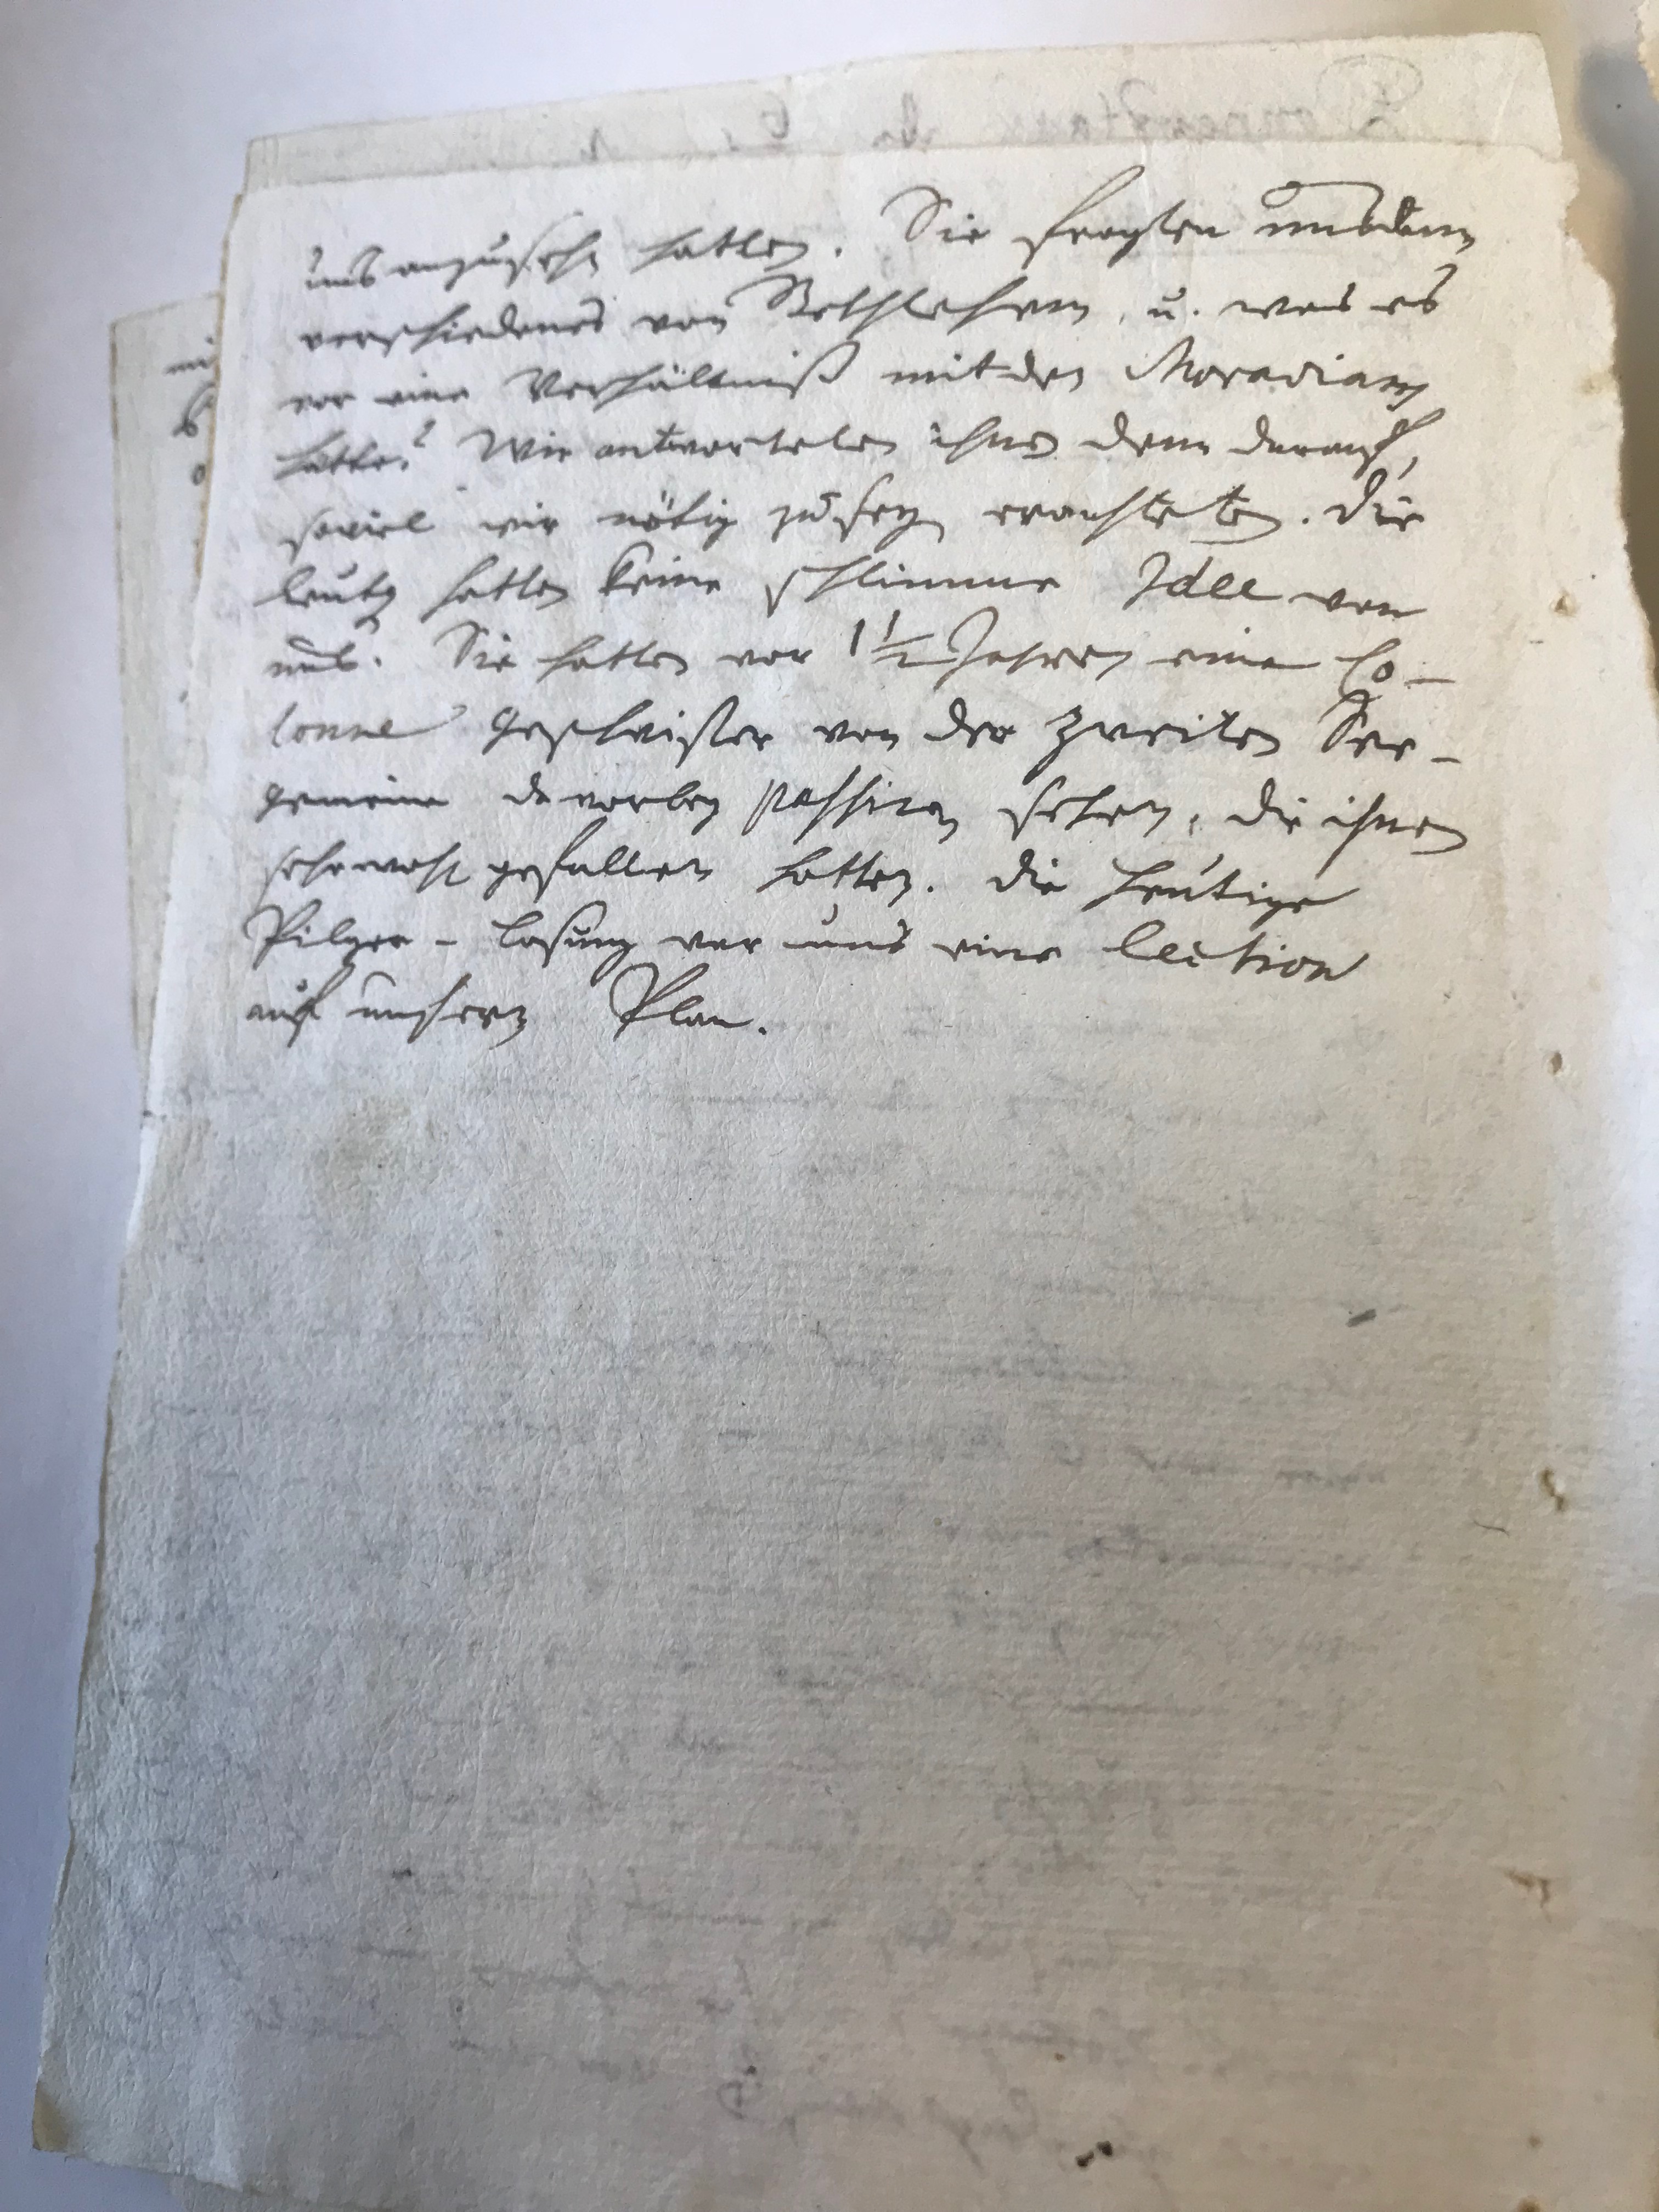 uns anzusehn hatten. Sie fragten uns dann
verschiedenes von Bethlehem, u. was es
vor eine Verhältniß mit den Moravians
hätte? Wir antworteten ihnen denn darauf,
soviel wir nötig zu seyn erachteten. Die
leute hatten keine schlimme Idee von
uns. Sie hatten vor 1 1/2 Jahren eine Co-
lonne Geschwister von der zweiten See-
gemeine da vorbey passiren sehen, die ihnen
sehr wohl gefallen hatten. Die heutige
Pilger - losung war uns eine lection
auf unsern Plan.